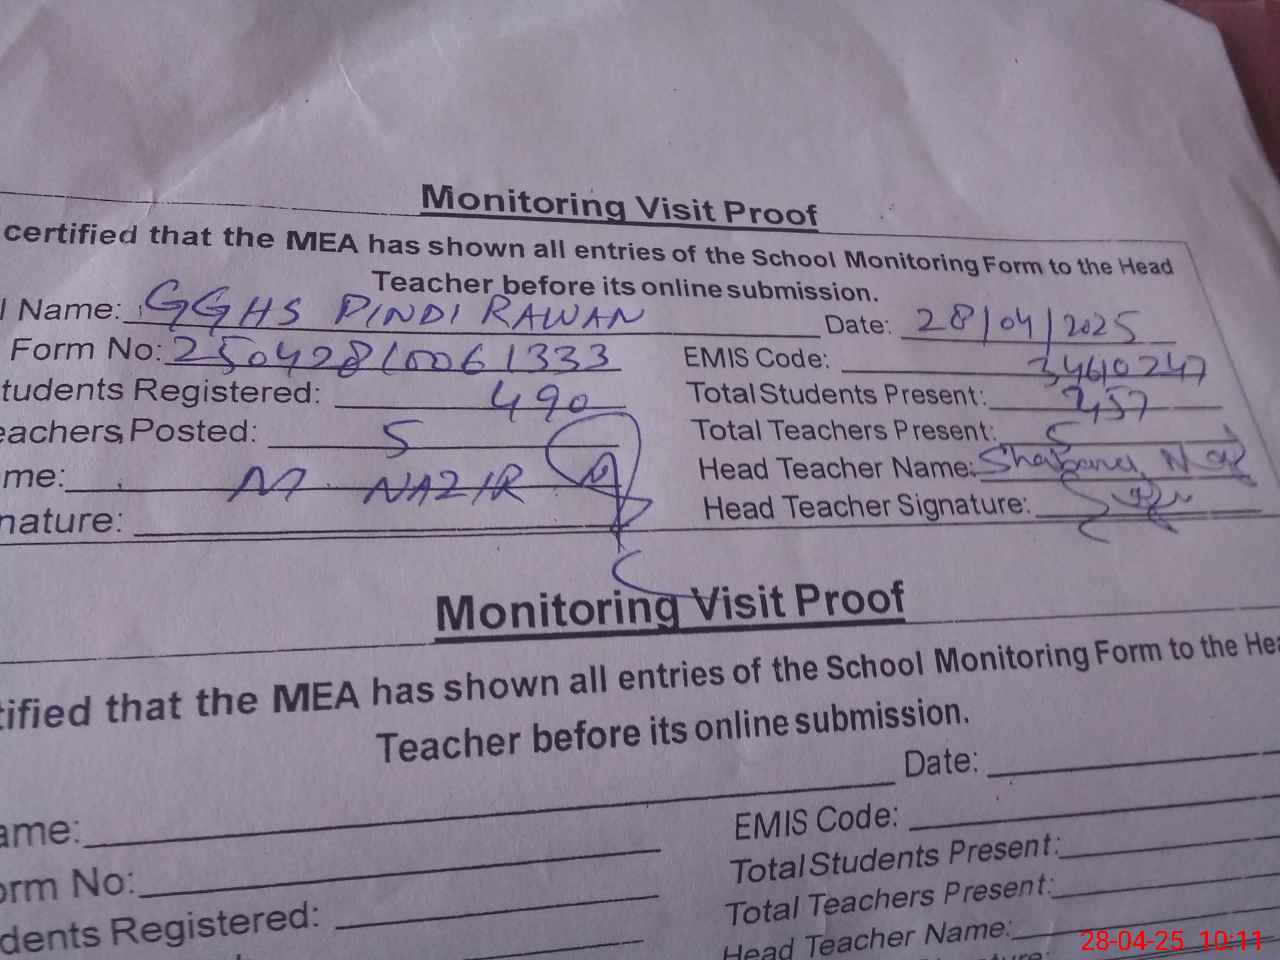 Monitoring Visit Proof
certified that the MEA has shown all entries of the School Monitoring Form to the Head
Teacher before its online submission.
l Name: GGHS PINDI RAWAN Date: 28/04/2025
Form No: 25042810061333 EMIS Code: 34610247
tudents Registered: 490 Total Students Present: 457
eachers Posted: 5 Total Teachers Present: 5
me: M NAZIR Head Teacher Name: Shabana
nature: Head Teacher Signature:
Monitoring Visit Proof
tified that the MEA has shown all entries of the School Monitoring Form to the Hea
Teacher before its online submission.
Date:
ame: EMIS Code:
orm No: Total Students Present:
dents Registered: Total Teachers Present:
Head Teacher Name:
28-04-25 10:11